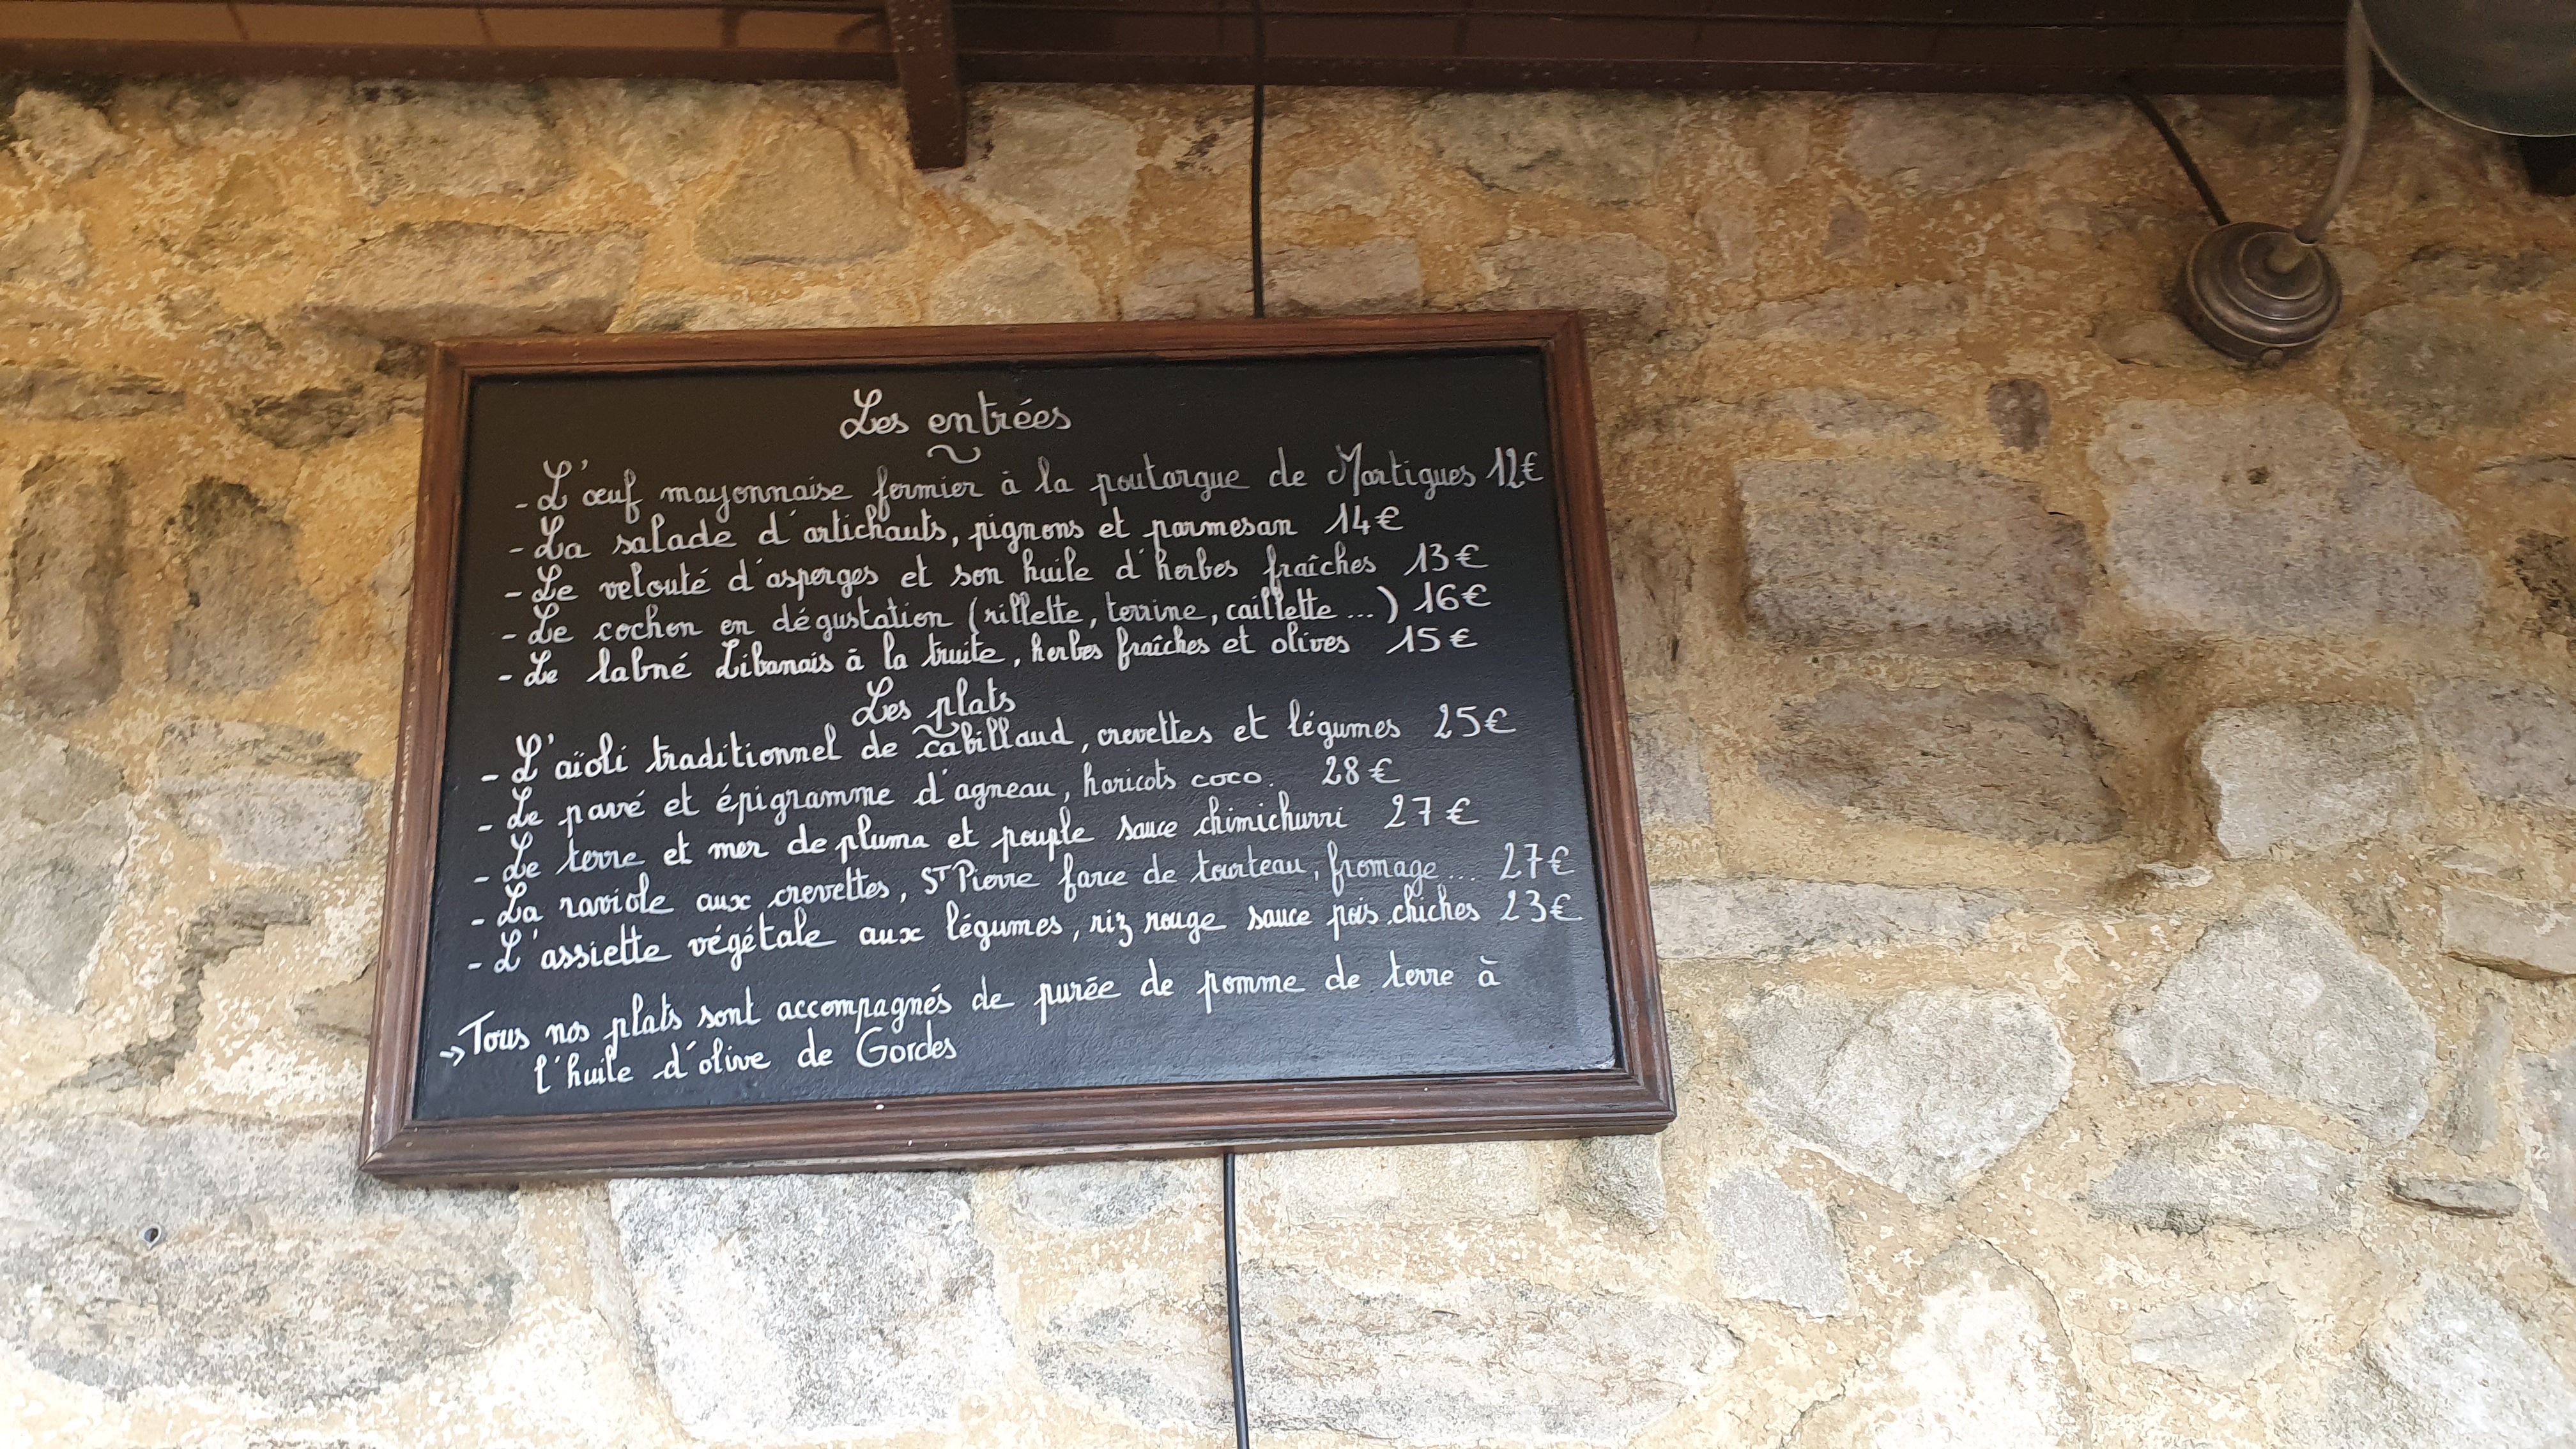 Les entrées
- L'œuf mayonnaise fermier à la poutargue de Martigues 12€
- La salade d'artichauts, pignons et parmesan 14€
- Le velouté d'asperges et son huile d'herbes fraîches 13€
- Le cochon en dégustation (rillette, terrine, caillette...) 16€
- Le labné Libanais à la truite, herbes fraîches et olives 15€
Les plats
- L'aïoli traditionnel de cabillaud, crevettes et légumes 25€
- Le pavé et épigramme d'agneau, haricots coco. 28€
- Le terre et mer de pluma et poulpe sauce chimichurri 27€
- La raviole aux crevettes, ST Pierre farce de tourteau, fromage... 27€
- L'assiette végétale aux légumes, riz rouge sauce pois chiches 23€
→ Tous nos plats sont accompagnés de purée de pomme de terre à
l'huile d'olive de Gordes